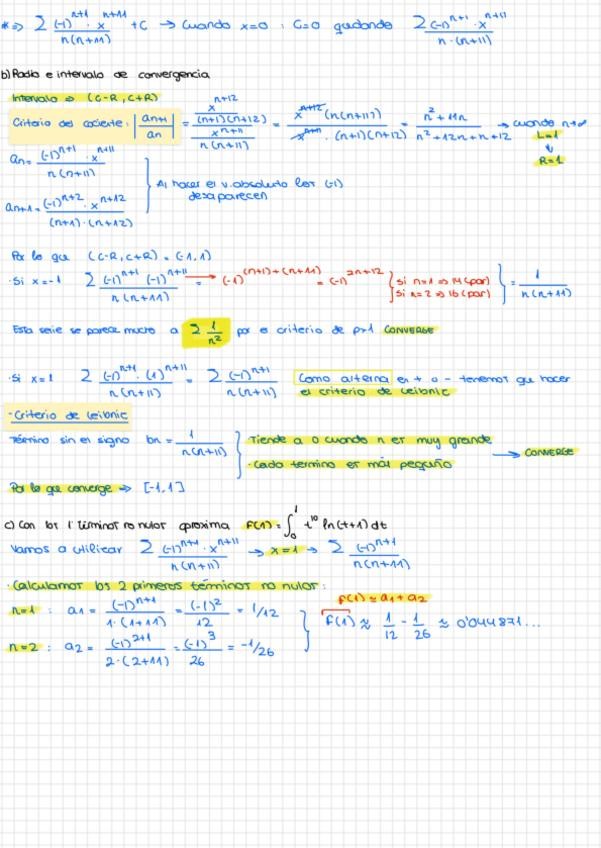 *⇒ Σ (-1)^(n+1) · x^(n+11) / n(n+11) + C → Cuando x=0 : C=0 quedando Σ (-1)^(n+1) · x^(n+11) / n·(n+11)
b) Radio e intervalo de convergencia
Intervalo ⇒ (C-R, C+R)
Criterio del cociente: |an+1 / an| = (x^(n+12) / (n+1)(n+12)) / (x^(n+11) / n(n+11)) = x^(n+12) (n(n+11)) / x^(n+11) · (n+1)(n+12) = n² + 11n / n² + 12n + n + 12 → cuando n→∞
L=1
↓
R=1
an = (-1)^(n+1) · x^(n+11) / n(n+11)
an+1 = (-1)^(n+2) · x^(n+12) / (n+1)·(n+12)
Al hacer el v. absoluto los (-1) desaparecen
Por lo que (C-R, C+R) = (-1, 1)
· Si x=-1 Σ (-1)^(n+1) (-1)^(n+11) / n(n+11) = → (-1)^((n+1)+(n+11)) = (-1)^(2n+12) { si n=1 ⇒ 14 (par) si n=2 ⇒ 16 (par) } = 1 / n(n+11)
Esta serie se parece mucho a Σ 1/n² por el criterio de p>1 CONVERGE
· Si x=1 Σ (-1)^(n+1) · (1)^(n+11) / n(n+11) = Σ (-1)^(n+1) / n(n+11) Como alterna en + o - tenemos que hacer
el criterio de Leibnic
· Criterio de Leibnic
Término sin el signo bn = 1 / n(n+11) } Tiende a 0 cuando n es muy grande
· Cada termino es más pequeño → CONVERGE
Por lo que converge ⇒ [-1,1]
c) Con los términos no nulos aproxima F(1) = ∫₀¹ t^10 ln(t+1) dt
Vamos a utilizar Σ (-1)^(n+1) · x^(n+11) / n(n+11) → x=1 → Σ (-1)^(n+1) / n(n+11)
· Calculamos los 2 primeros términos no nulos:
n=1 : a1 = (-1)^(n+1) / 1·(1+11) = (-1)² / 12 = 1/12
n=2 : a2 = (-1)^(2+1) / 2·(2+11) = (-1)³ / 26 = -1/26
F(1) ≈ a1 + a2
F(1) ≈ 1/12 - 1/26 ≈ 0'044871...